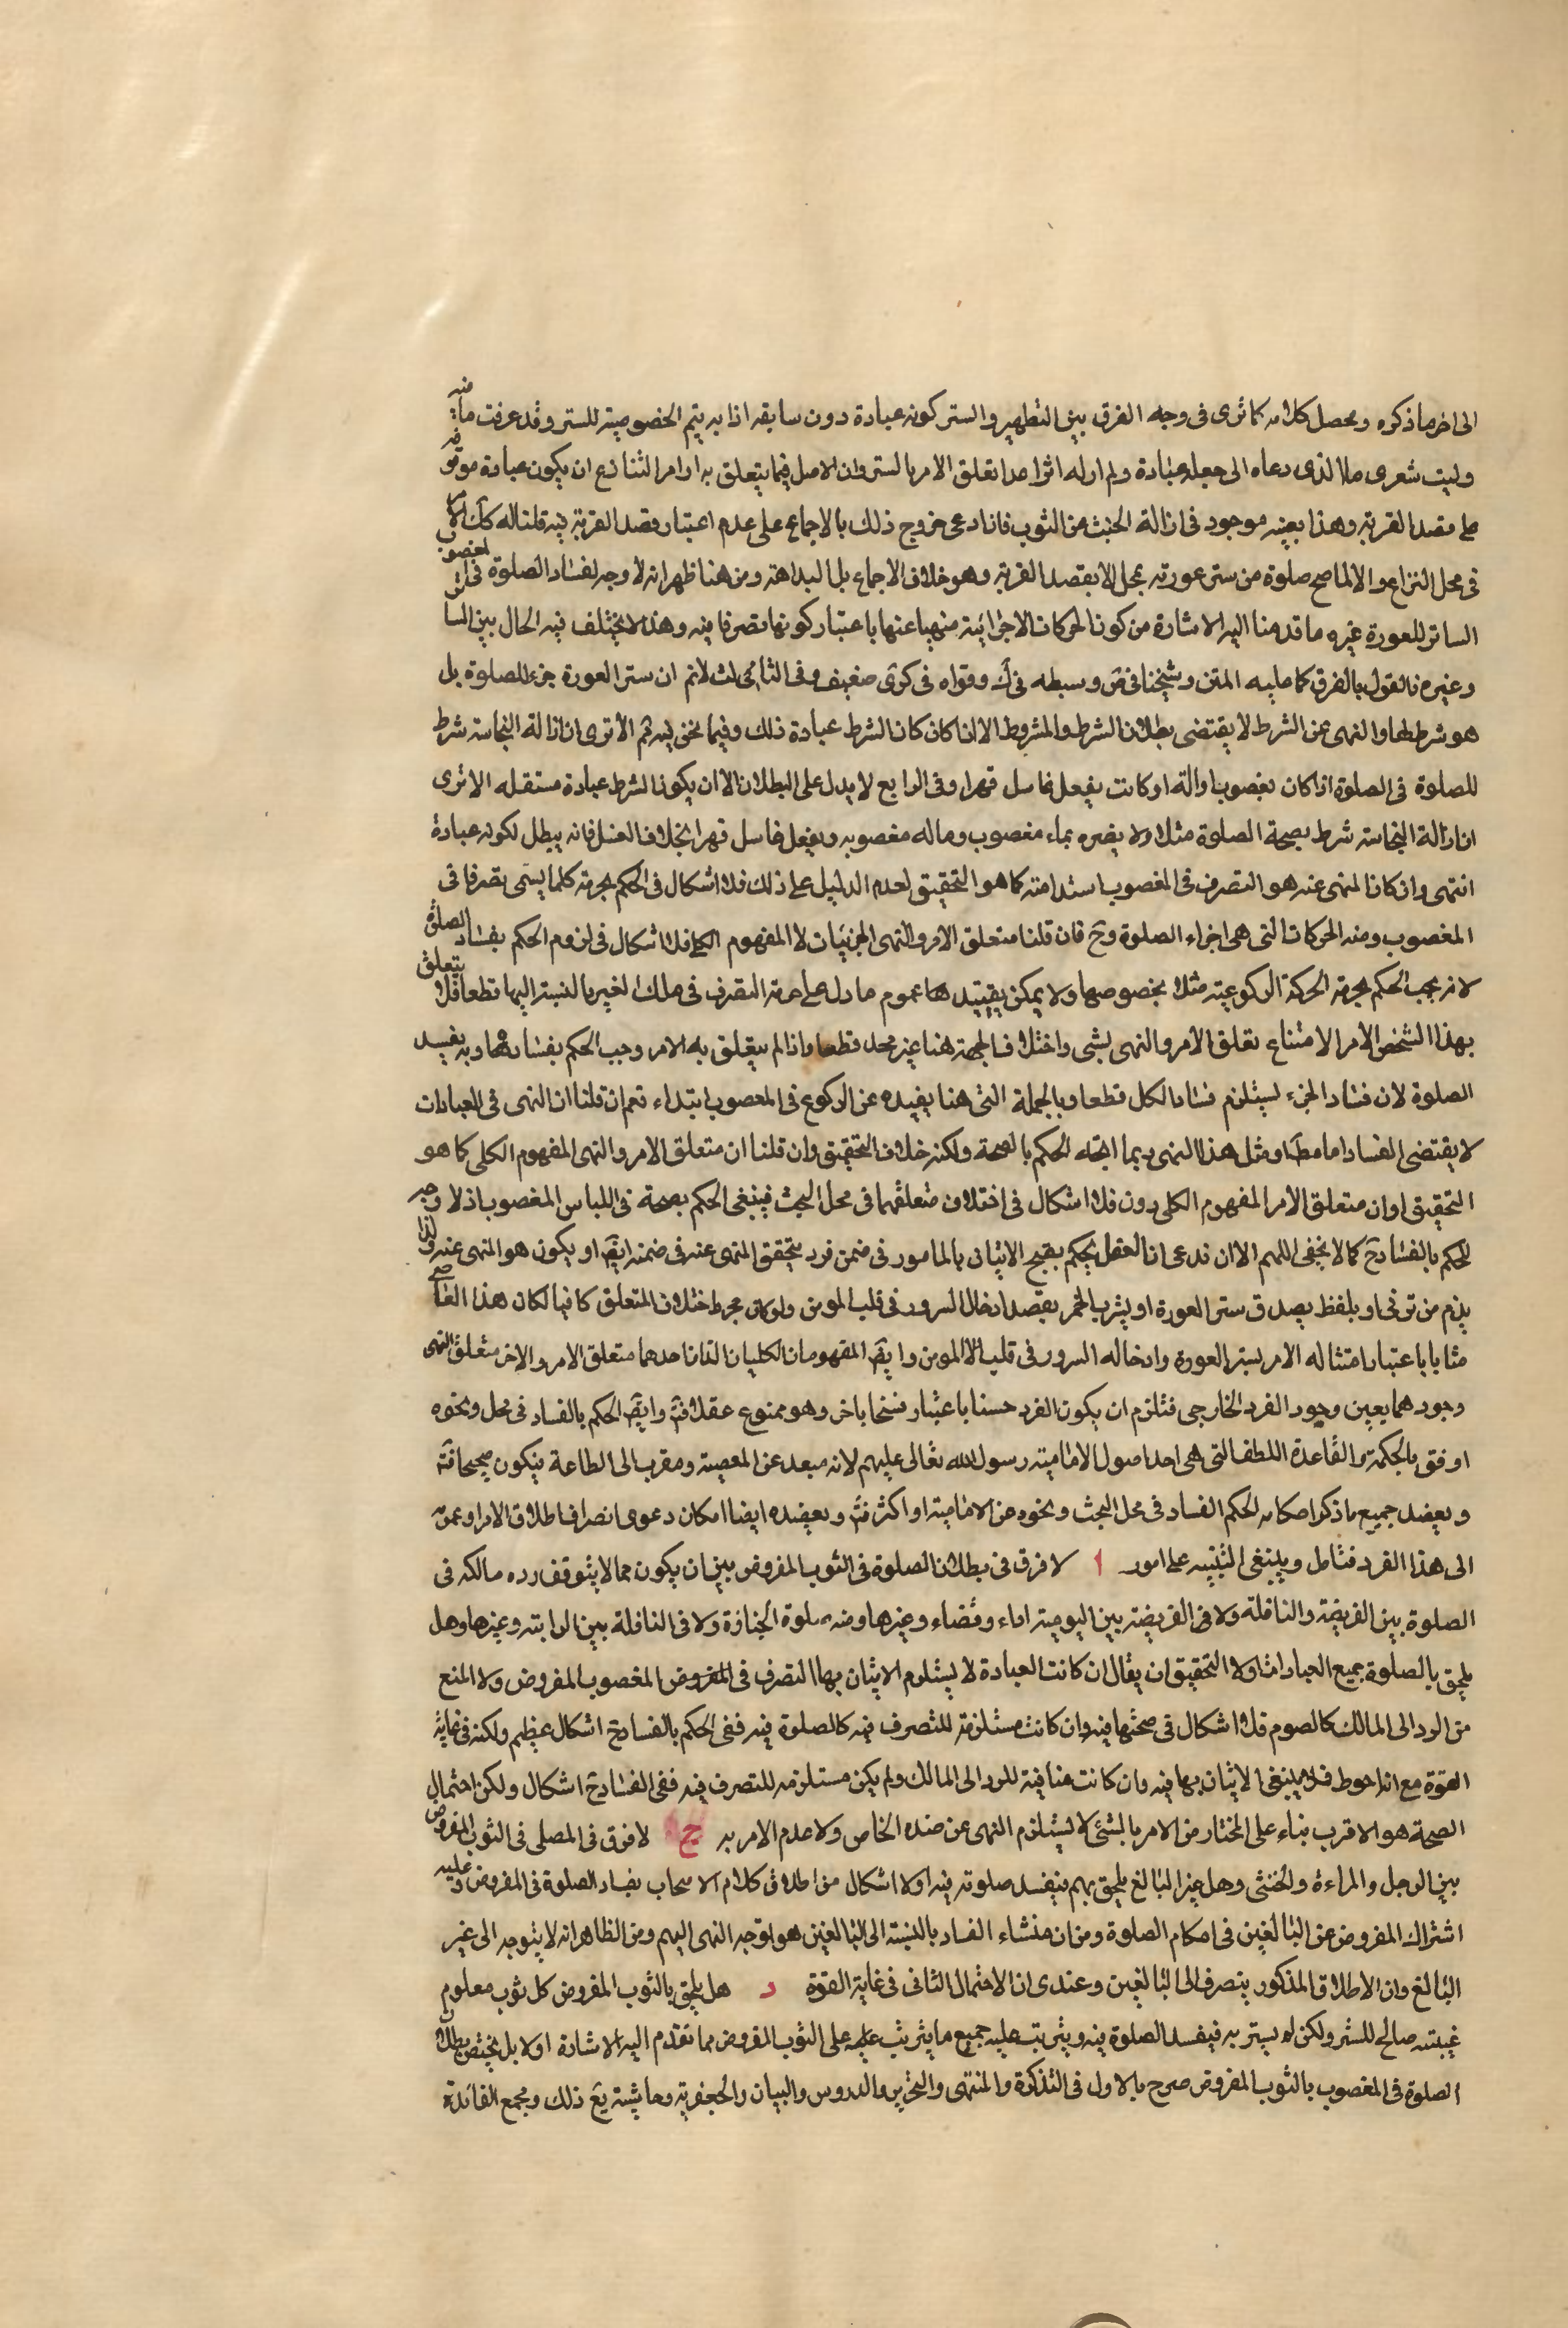 الى اخر ما ذكره و محصل كلامه كما ترى فى وجه الفرق بين التطهير و الستر كونه عبادة دون سابقه اذا به يتم الخصوصية للستر و قد عرفت ما فيه
وليت شعرى ما الذى دعاه الى جعله عبادة ولم ار له اثرا عدا تعلق الامر بالستر وان الاصل فيما يتعلق به اوامر الشارع ان يكون عبادة موقوفة
على قصد القربة وهذا بعينه موجود فى ازالة الخبث من الثوب فان ادعى خروج ذلك بالاجماع على عدم اعتبار قصد القربة فيه قلنا له كك الامر
فى محل النزاع والا لما صح صلوة من ستر عورته بمحل الا بقصد القربة وهو خلاف الاجماع بل البداهة ومن هنا ظهر انه لا وجه لفساد الصلوة فى المغصوب
الساتر للعورة غيره ما قدمنا اليه الاشارة من كون الحركات الاجزائية منهيا عنها باعتبار كونها تصرفا فيه وهذا لا يختلف فيه الحال بين الساتر
وغيره فالقول بالفرق كما عليه المتن وشيخنا فى ض وسبطه فى ك وقواه فى كرى ضعيف وفى الثانى لث لانم ان ستر العورة جزء للصلوة بل
هو شرط لها والنهى عن الشرط لا يقتضى بطلان الشرط والمشروط الا اذا كان كان الشرط عبادة ذلك وفيما نحن فيه ثم الا ترى ان ازالة النجاسة شرط
للصلوة فى الصلوة اذا كان بغصوب اوالة او كانت بفعل غاسل قهرا وفى الرابع لا يدل على البطلان الا ان يكون الشرط عبادة مستقله الا ترى
ان ازالة النجاسة شرط بصحة الصلوة مثلا ولا يضره بماء مغصوب وماله مغصوبه وبفعل غاسل قهرا بخلاف الغسل فانه يبطل لكونه عبادة
انتهى وان كان المنهى عنه هو التصرف فى المغصوب استدامته كما هو التحقيق لعدم الدليل على ذلك فلا اشكال فى الحكم بحرمة كلما يسمى تصرفا فى
المغصوب ومنه الحركات التى هى اجزاء الصلوة وح فان قلنا متعلق الامر والنهى الجزئيات لا المفهوم الكلى فلا اشكال فى لزوم الحكم بفساد الصلوة
لانه يجب الحكم بحرمة الحركة الركوعية مثلا بخصوصها ولا يمكن تقييدها عموم ما دل على حرمة التصرف فى ملك الغير بالنسبة اليها قطعا فلا يتعلق
بهذا الشخص الامر لامتناع تعلق الامر والنهى بشى واختلاف الجهة هنا غير محل قطعا واذا لم يتعلق به الامر وجب الحكم بفسادها وبه يفسد
الصلوة لان فساد الجزء يستلزم فساد الكل قطعا وبالجملة التى هنا يفيده عن الركوع فى المغصوب ابتداء نعم ان قلنا ان النهى فى العبادات
لا يقتضى الفساد اما مط او مثل هذا النهى ربما اتجه الحكم بالصحة ولكنه خلاف التحقيق وان قلنا ان متعلق الامر والنهى المفهوم الكلى كما هو
التحقيق او ان متعلق الامر المفهوم الكلى دون فلا اشكال فى اختلاف متعلقهما فى محل البحث فينبغى الحكم بصحة فى اللباس المغصوب اذ لا وجه
للحكم بالفساد ح كما لا يخفى اللهم الا ان ندعى ان العقل يحكم بقبح الاتيان بالمامور فى ضمن فرد يتحقق المنهى عنه فى ضمنه ايض او يكون هو المنهى عنه ولذا
يذم من ترفى او بلفظ يصدق ستر العورة او يشرب الخمر بقصد ادخال السرور فى قلب المومن ولو كان مجرد اختلاف المتعلق كافيا لكان هذا العاصى
مثابا باعتبار امتثاله الامر بستر العورة وادخاله السرور فى قلب الا المومن وايض المفهومان الكليان اللذان احدهما متعلق الامر والاخر متعلق النهى
وجودهما بعين وجود الفرد الخارجى فتلزم ان يكون الفرد حسنا باعتبار قبيحا باخر وهو ممنوع عقلا فتم وايض الحكم بالفساد فى محل ونحوه
اوفق بالحكمة والقاعدة اللطف التى هى احد اصول الامامية رسول الله تعالى عليهم لانه مبعد عن المعصية ومقرب الى الطاعة فيكون صحيحا فتم
ويعضد جميع ما ذكر احكامه الحكم الفساد فى محل البحث ونحوه من الامامية او اكثر فتم ويعضده ايضا امكان دعوى انصراف اطلاق الامر او عمومه
الى هذا الفرد فتامل وينبغى التنبيه على امور ا لا فرق فى بطلان الصلوة فى الثوب المفروض بين ان يكون مما لا يتوقف رده مالكه فى
الصلوة بين الفريضة والنافلة ولا فى الفريضة بين اليومية اداء وقضاء وغيرها ومنه صلوة الجنازة ولا فى النافلة بين الراتبة وغيرها وهل
يلحق بالصلوة جميع العبادات اولا التحقيق ان يقال ان كانت العبادة لا يستلزم الاتيان بها التصرف فى المفروض المغصوب المفروض ولا المنع
من الرد الى المالك كالصوم فلا اشكال فى صحتها فيه وان كانت مستلزمة للتصرف فيه كالصلوة فيه ففى الحكم بالفساد ح اشكال عظيم ولكنه فى غاية
القوة مع انه احوط فلا ينبغى الاتيان بها فيه وان كانت منافية للرد الى المالك ولم يكن مستلزمه للتصرف فيه ففى الفساد ح اشكال ولكن احتمال
الصحة هو الاقرب بناء على المختار من الامر بالشئ لا يستلزم النهى عن ضده الخاص ولا عدم الامر به ج لا فرق فى المصلى فى الثوب المفروض
بين الرجل والمراءة والخنثى وهل غير البالغ يلحق بهم فيفسد صلوته فيه اولا اشكال من اطلاق كلام الاصحاب بفساد الصلوة فى المفروض وعليه
اشتراك المفروض من البالغين فى احكام الصلوة ومن ان منشاء الفساد بالنسبة الى البالغين هو توجه النهى اليهم ومن الظاهر انه لا يتوجه الى غير
البالغ وان الاطلاق المذكور ينصرف الى البالغين وعندى ان الاحتمال الثانى فى غاية القوة د هل يلحق بالثوب المفروض كل ثوب معلوم
غيبته صالح للستر ولكن لم يستر به فيفسد الصلوة فيه ويترتب عليه جميع ما يترتب عليه على الثوب المفروض مما تقدم اليه الاشارة اولا بل يختص بطلان
الصلوة فى المغصوب بالثوب المفروض صرح بالاول فى التذكرة والمنتهى والتحرير والدروس والبيان والجعفرية وحاشية يع ذلك ومجمع الفائدة